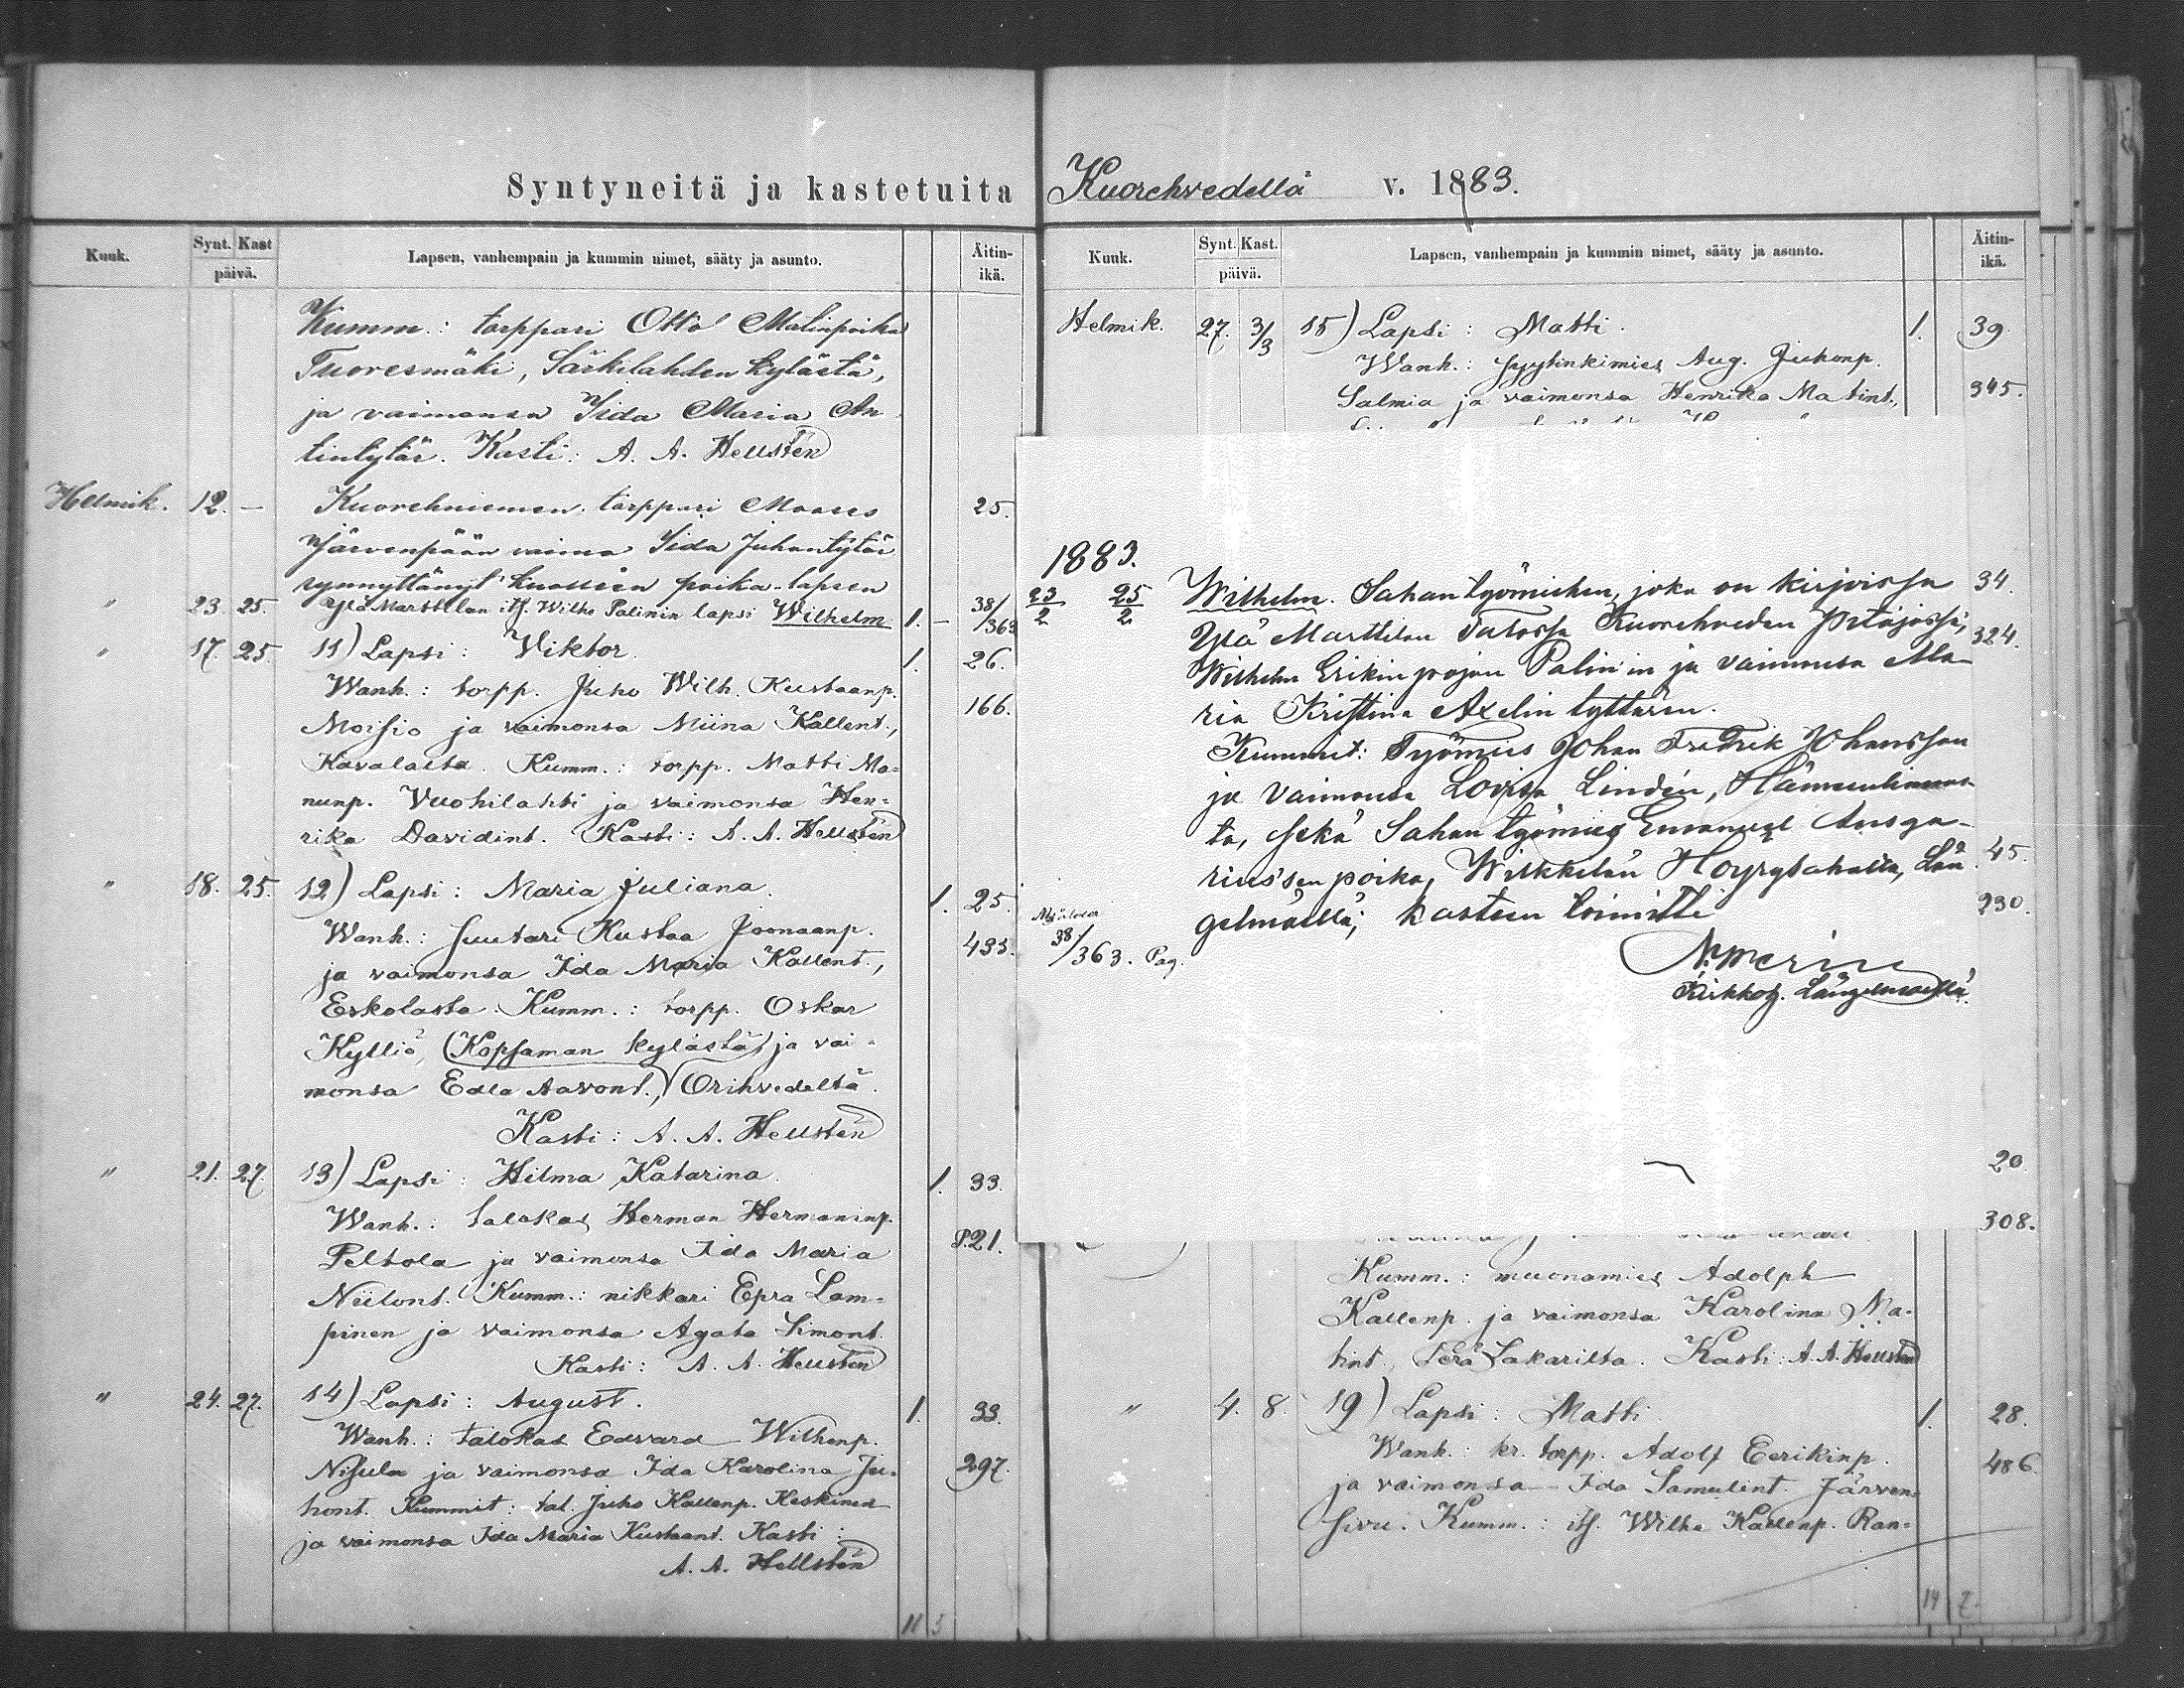 Syntyneitä ja kastetuita
Kuuk. Synt. Kast päivä. Lapsen, vanhempain ja kummin nimet, sääty ja asunto. Äitin-ikä.
Kumm.: torppari Otto Matinpoika
Tuoresmäki, Särkilahden kylästä,
ja vaimonsa Iida Maria An
tintytär. Kasti: A. A. Hellstén
Helmik. 12. — Kuorehniemen torppari Moases 25.
Järvenpään vaimo Iida Juhantytär
synnyttänyt kuolleen poika-lapsen
" 23. 25. Ylä Marttilan its. Wilhe Palinin lapsi Wilhelm 1. — 38/363
" 17. 25. 11) Lapsi: Viktor. 1. 26.
Wanh.: torpp. Juho Wilh. Kustaanp. 166.
Moisio ja vaimonsa Miina Kallent.,
Kavalasta. Kumm.: torpp. Matti Ma-
nunp. Vuohilahti ja vaimonsa Hen-
rika Davidint. Kasti: A. A. Hellstén
" 18. 25. 12) Lapsi: Maria Juliana. 1. 25.
Wanh.: suutari Kustaa Joonaanp. 433.
ja vaimonsa Ida Maria Kallent.,
Eskolasta. Kumm.: torpp. Oskar
Kylliö, (Kopsaman kylästä) ja vai-
monsa Edla Aavont., Orihvedeltä.
Kasti: A. A. Hellstén
" 21. 27. 13) Lapsi: Hilma Katarina. 1. 33.
Wanh.: talokas Herman Hermaninp.
Peltola ja vaimonsa Ida Maria S.21.
Niilont. Kumm.: nikkari Epra Lam-
pinen ja vaimonsa Agata Simont.
Kasti: A. A. Hellstén
" 24. 27. 14) Lapsi: August. 1. 33.
Wanh.: talokas Edvard Wilhenp.
Nisula ja vaimonsa Ida Karolina Ju- 297.
hont. Kummit: tal. Juho Kallenp. Keskinen
ja vaimonsa Ida Maria Kustaant. Kasti:
A. A. Hellstén
11 3
Kuorehvedellä v. 1883.
Kuuk. Synt. Kast. päivä. Lapsen, vanhempain ja kummin nimet, sääty ja asunto. Äitin-ikä.
Helmik. 27. 3/3 15) Lapsi: Matti. 1. 39.
Wanh.: syytinkimies Aug. Juhonp.
Salmia ja vaimonsa Henrika Matint., 345.
1883.
23/2 25/2 Wilhelm. Sahan työmiehen, joka on kirjoissa 34.
Ylä Marttilan talossa Kuorehveden pitäjässä, 324.
Wilhelm Erikin pojan Palin'in ja vaimonsa Ma-
ria Kristina Axelin tyttären.
Kummit: Työmies Johan Fredrik Johansson
ja vaimonsa Lovisa Lindén, Hämeenlinnas-
ta, sekä Sahan työmies Emanuel Ansga- 45.
rius'sen poika, Wilkkilän Höyrysahalla, Län
gelmäellä; kasteen toimitti 230.
38/363. Pag.
Kirkkoh. Längelmäellä.
20
308.
Kumm.: muonamies Adolph
Kallenp. ja vaimonsa Karolina Ma-
tint. Perä Sakarilta. Kasti: A. A. Hellstén
" 4. 8. 19) Lapsi: Matti 1. 28.
Wanh.: kr. torpp. Adolf Eerikinp. 486
ja vaimonsa Ida Samulint. Järven-
sivu. Kumm.: its. Wilhe Kallenp. Ran-
14 2.